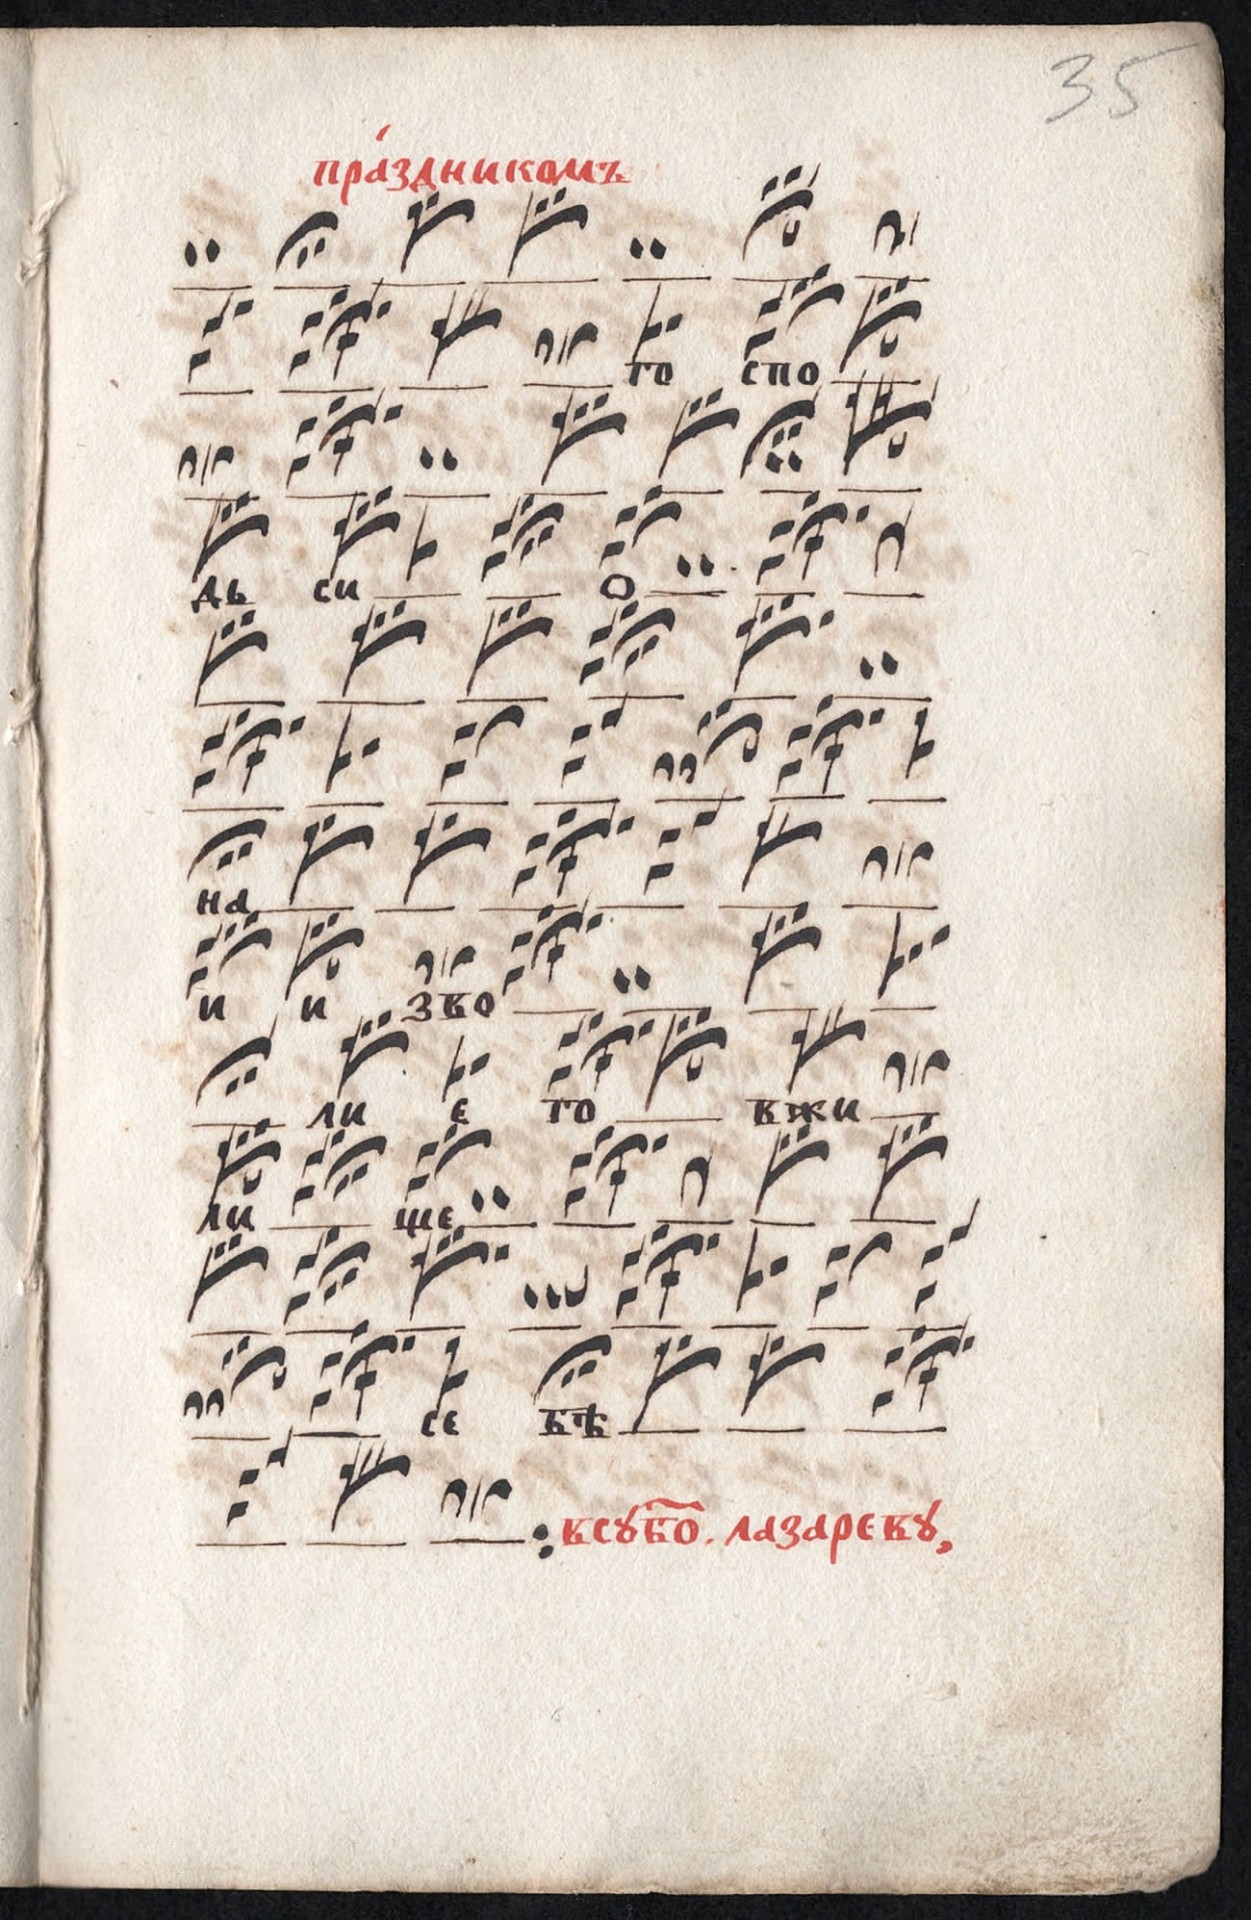 35
пра́здникомъ
го спо
дь си о
на
и и зво
ли є го вжи
ли ще
се бѣ
всꙋбо. лазаревꙋ,